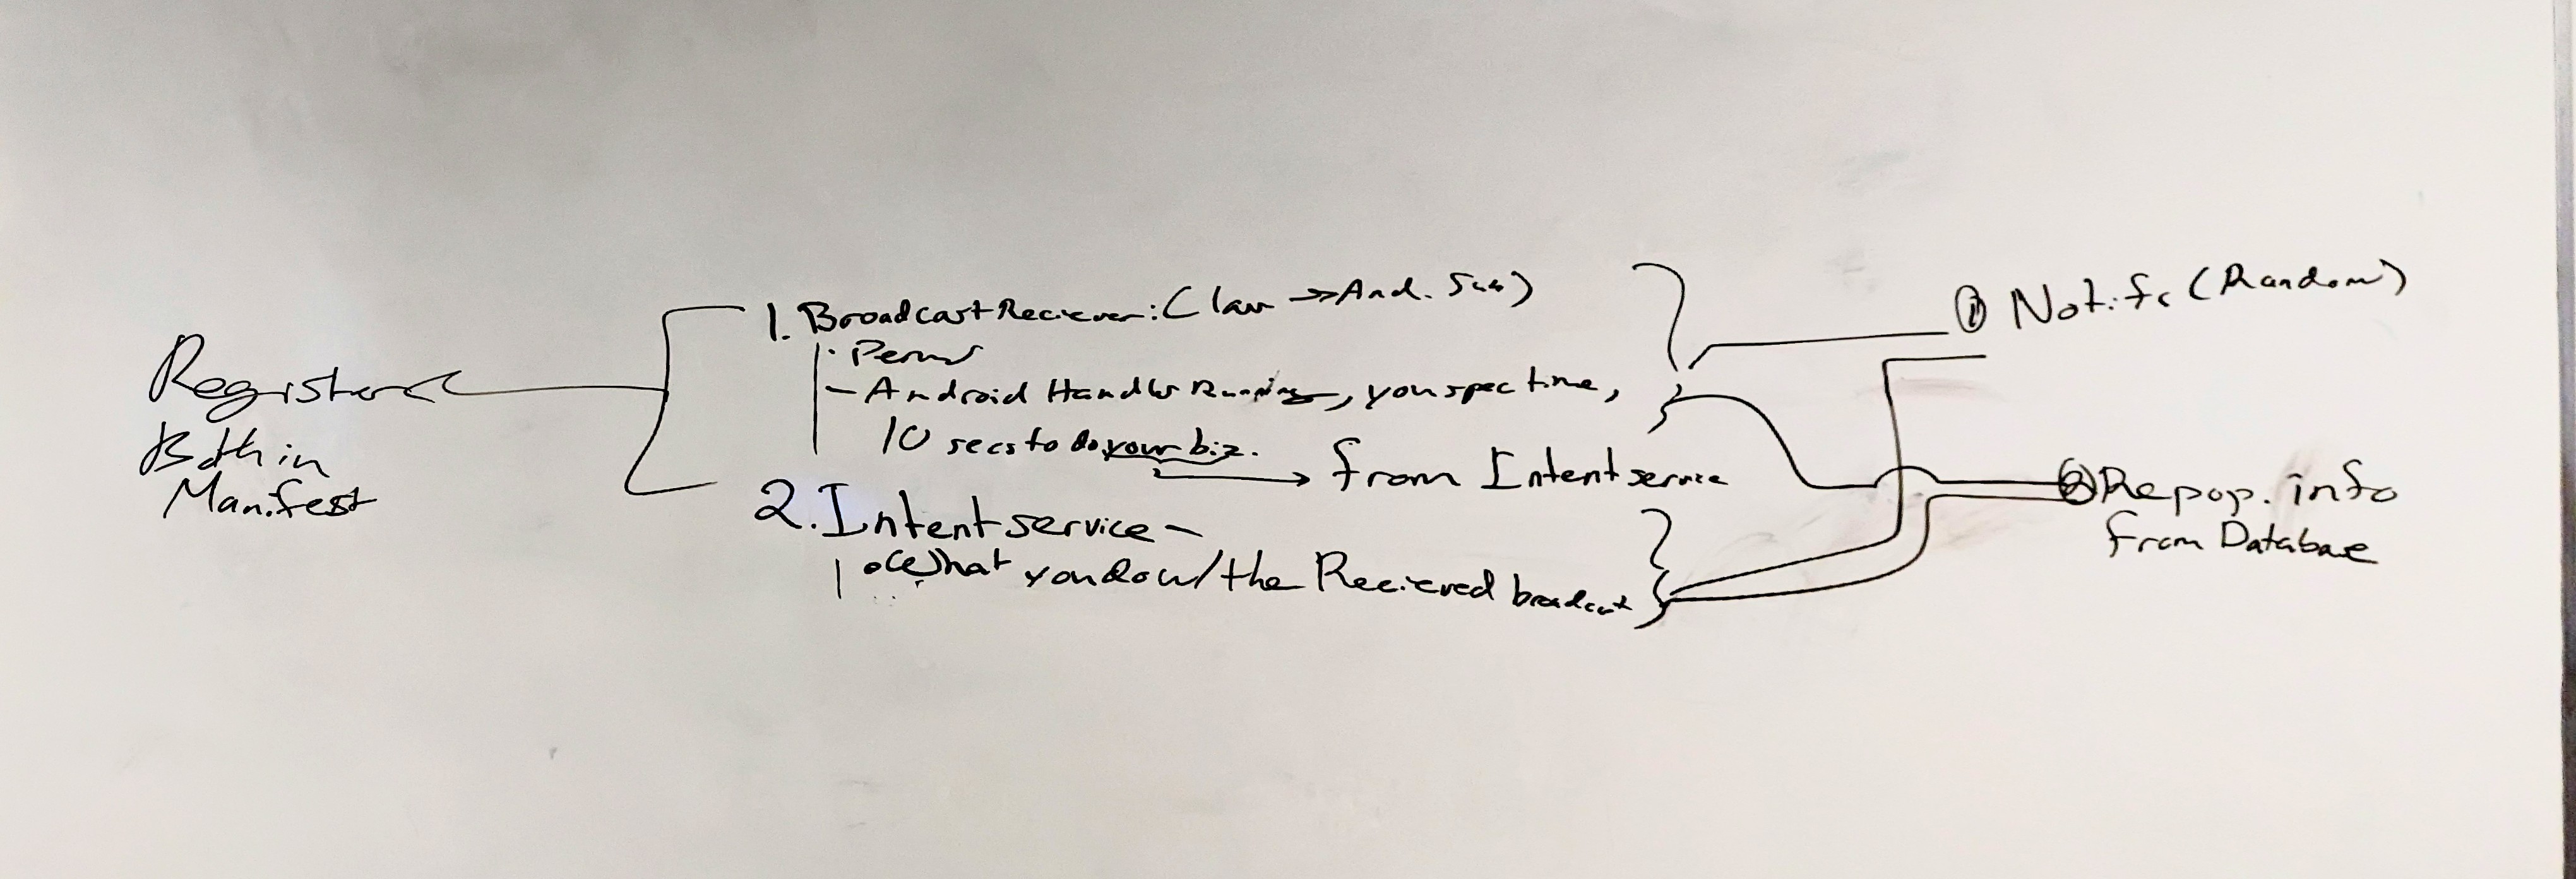 Register
Both in
Manifest
1. BroadcastReciever: (
· Perms
- Android Handles Running, you spec time,
10 secs to do your biz.
from Intentservice
2. Intentservice -
• What you do w/ the Recieved broadcast
① Notifc (Random)
② Repop. info
from Database